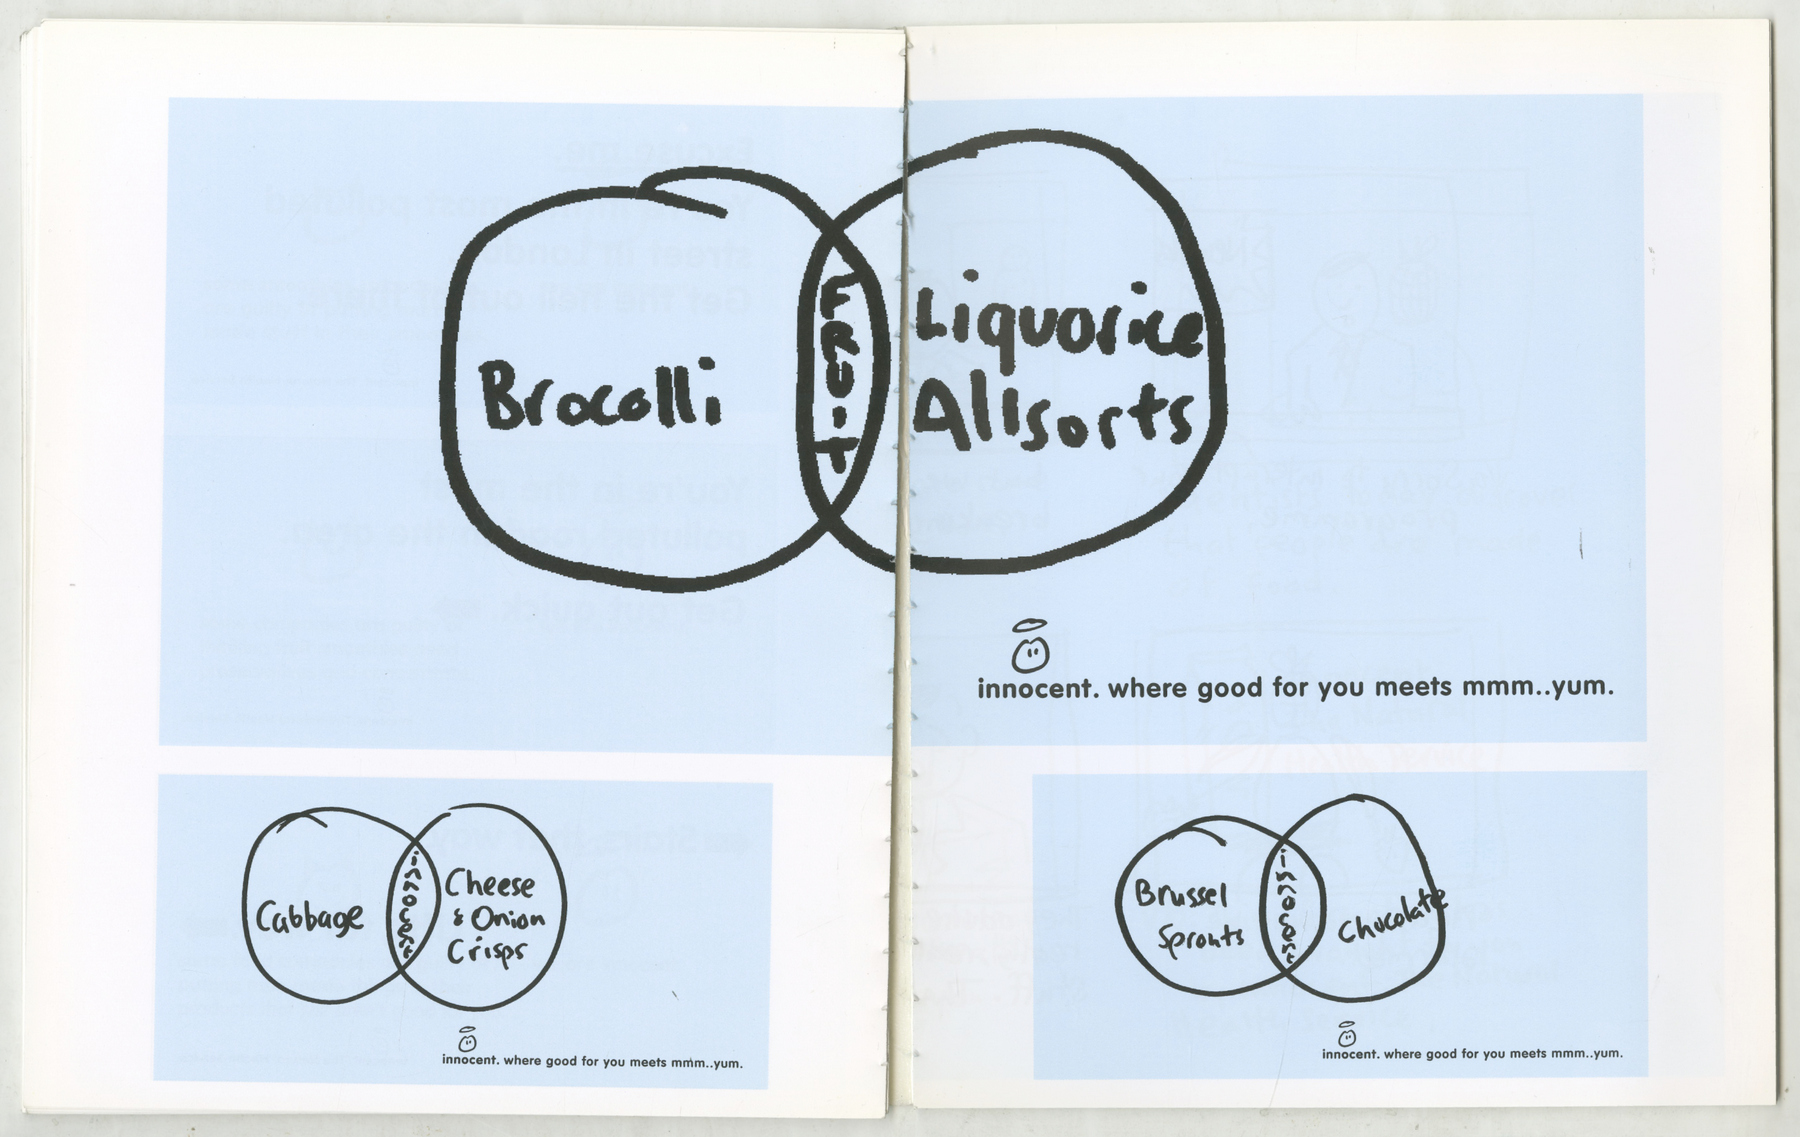 Brocolli
FRUIT
Liquorice
Allsorts
innocent. where good for you meets mmm..yum.
Cabbage
innocent
Cheese
& Onion
Crisps
innocent. where good for you meets mmm..yum.
Brussel
Sprouts
innocent
Chocolate
innocent. where good for you meets mmm..yum.